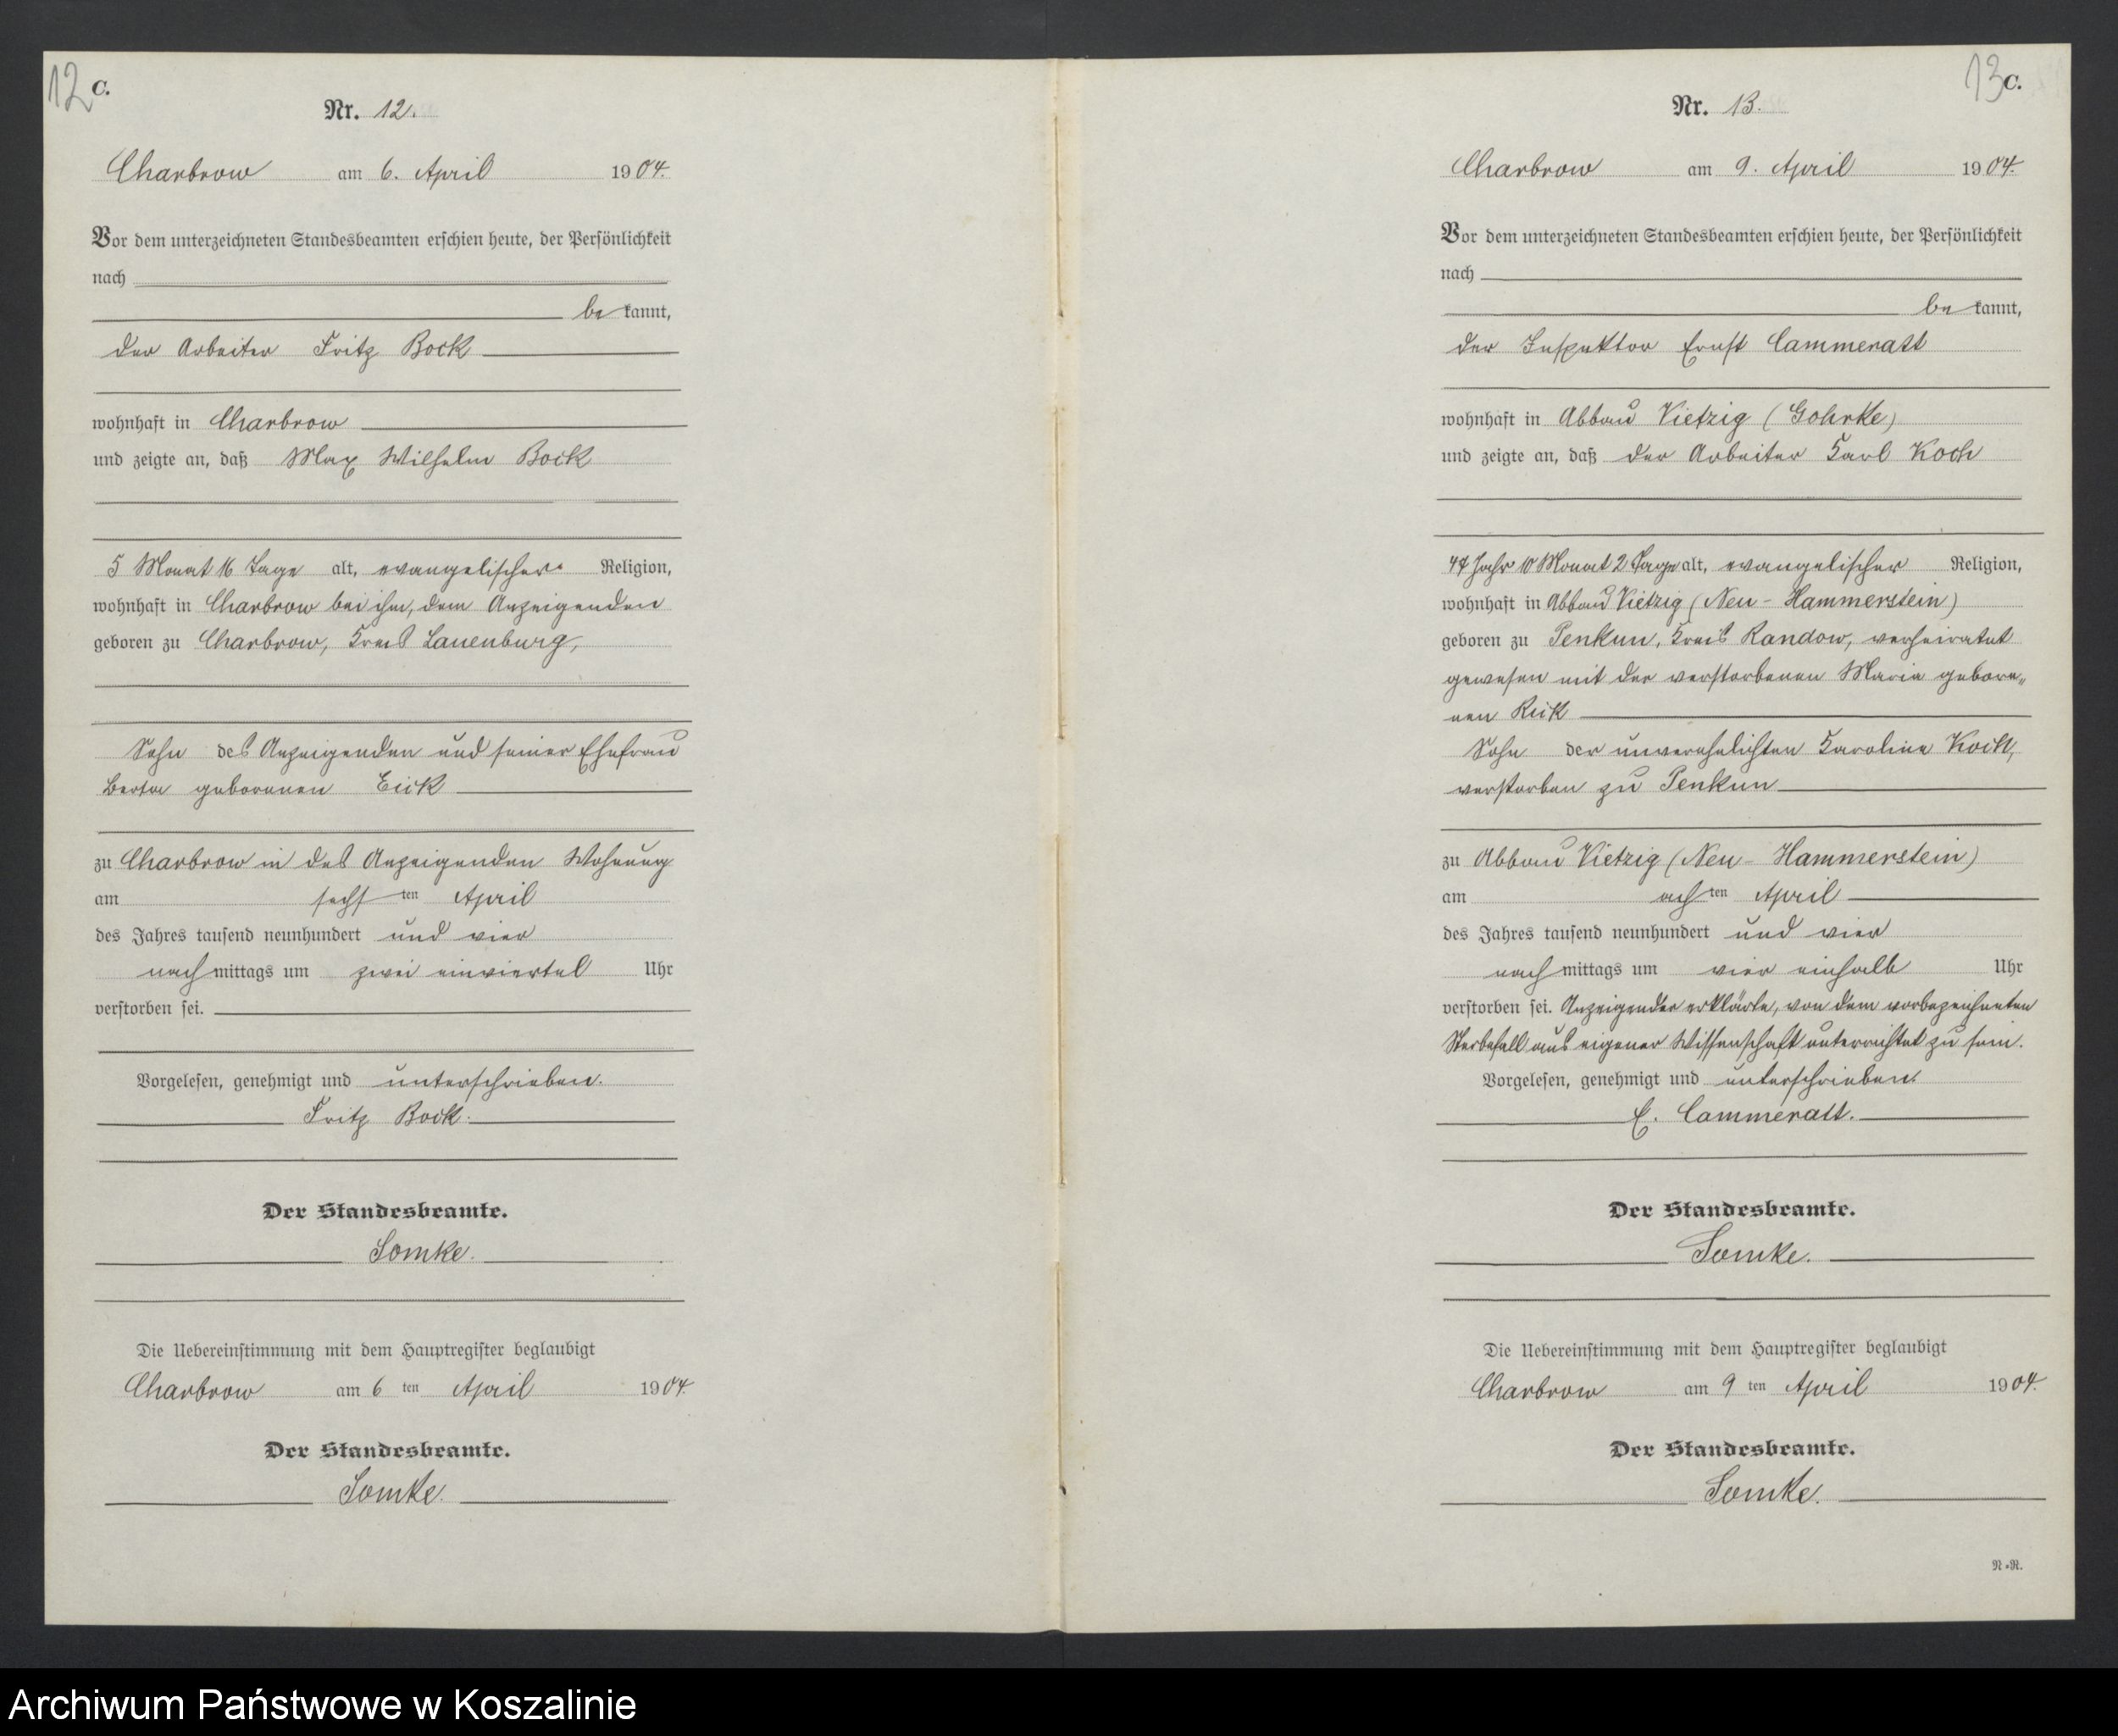 12 C.
Nr. 12.
Charbrow am 6. April 1904.
Vor dem unterzeichneten Standesbeamten erschien heute, der Persönlichkeit
nach
bekannt,
der Arbeiter Fritz Bock
wohnhaft in Charbrow
und zeigte an, daß Max Wilhelm Bock
5 Monat 16 Tage alt, evangelischer Religion,
wohnhaft in Charbrow bei ihm, dem Anzeigenden
geboren zu Charbrow, Kreis Lauenburg,
Sohn des Anzeigenden und seiner Ehefrau
Berta geborenen Eick
zu Charbrow in des Anzeigenden Wohnung
am sechsten April
des Jahres tausend neunhundert und vier
nachmittags um zwei einviertel Uhr
verstorben sei.
Vorgelesen, genehmigt und unterschrieben.
Fritz Bock.
Der Standesbeamte.
Somke.
Die Uebereinstimmung mit dem Hauptregister beglaubigt
Charbrow am 6 ten April 1904.
Der Standesbeamte.
Somke.
13 C.
Nr. 13.
Charbrow am 9. April 1904.
Vor dem unterzeichneten Standesbeamten erschien heute, der Persönlichkeit
nach
bekannt,
der Inspektor Ernst Cammeratt
wohnhaft in Abbau Vietzig (Gohrke)
und zeigte an, daß der Arbeiter Karl Koch
47 Jahr 10 Monat 2 Tage alt, evangelischer Religion,
wohnhaft in Abbau Vietzig (Neu-Hammerstein)
geboren zu Penkun, Kreis Randow, verheiratet
gewesen mit der verstorbenen Maria gebore„
nen Reik
Sohn der unverehelichten Karoline Koch,
verstorben zu Penkun
zu Abbau Vietzig (Neu-Hammerstein)
am achten April
des Jahres tausend neunhundert und vier
nachmittags um vier einhalb Uhr
verstorben sei. Anzeigender erklärte, von dem vorbezeichneten
Sterbefall aus eigener Wissenschaft unterrichtet zu sein.
Vorgelesen, genehmigt und unterschrieben.
E. Cammeratt.
Der Standesbeamte.
Somke.
Die Uebereinstimmung mit dem Hauptregister beglaubigt
Charbrow am 9 ten April 1904.
Der Standesbeamte.
Somke.
N.R.
Archiwum Państwowe w Koszalinie